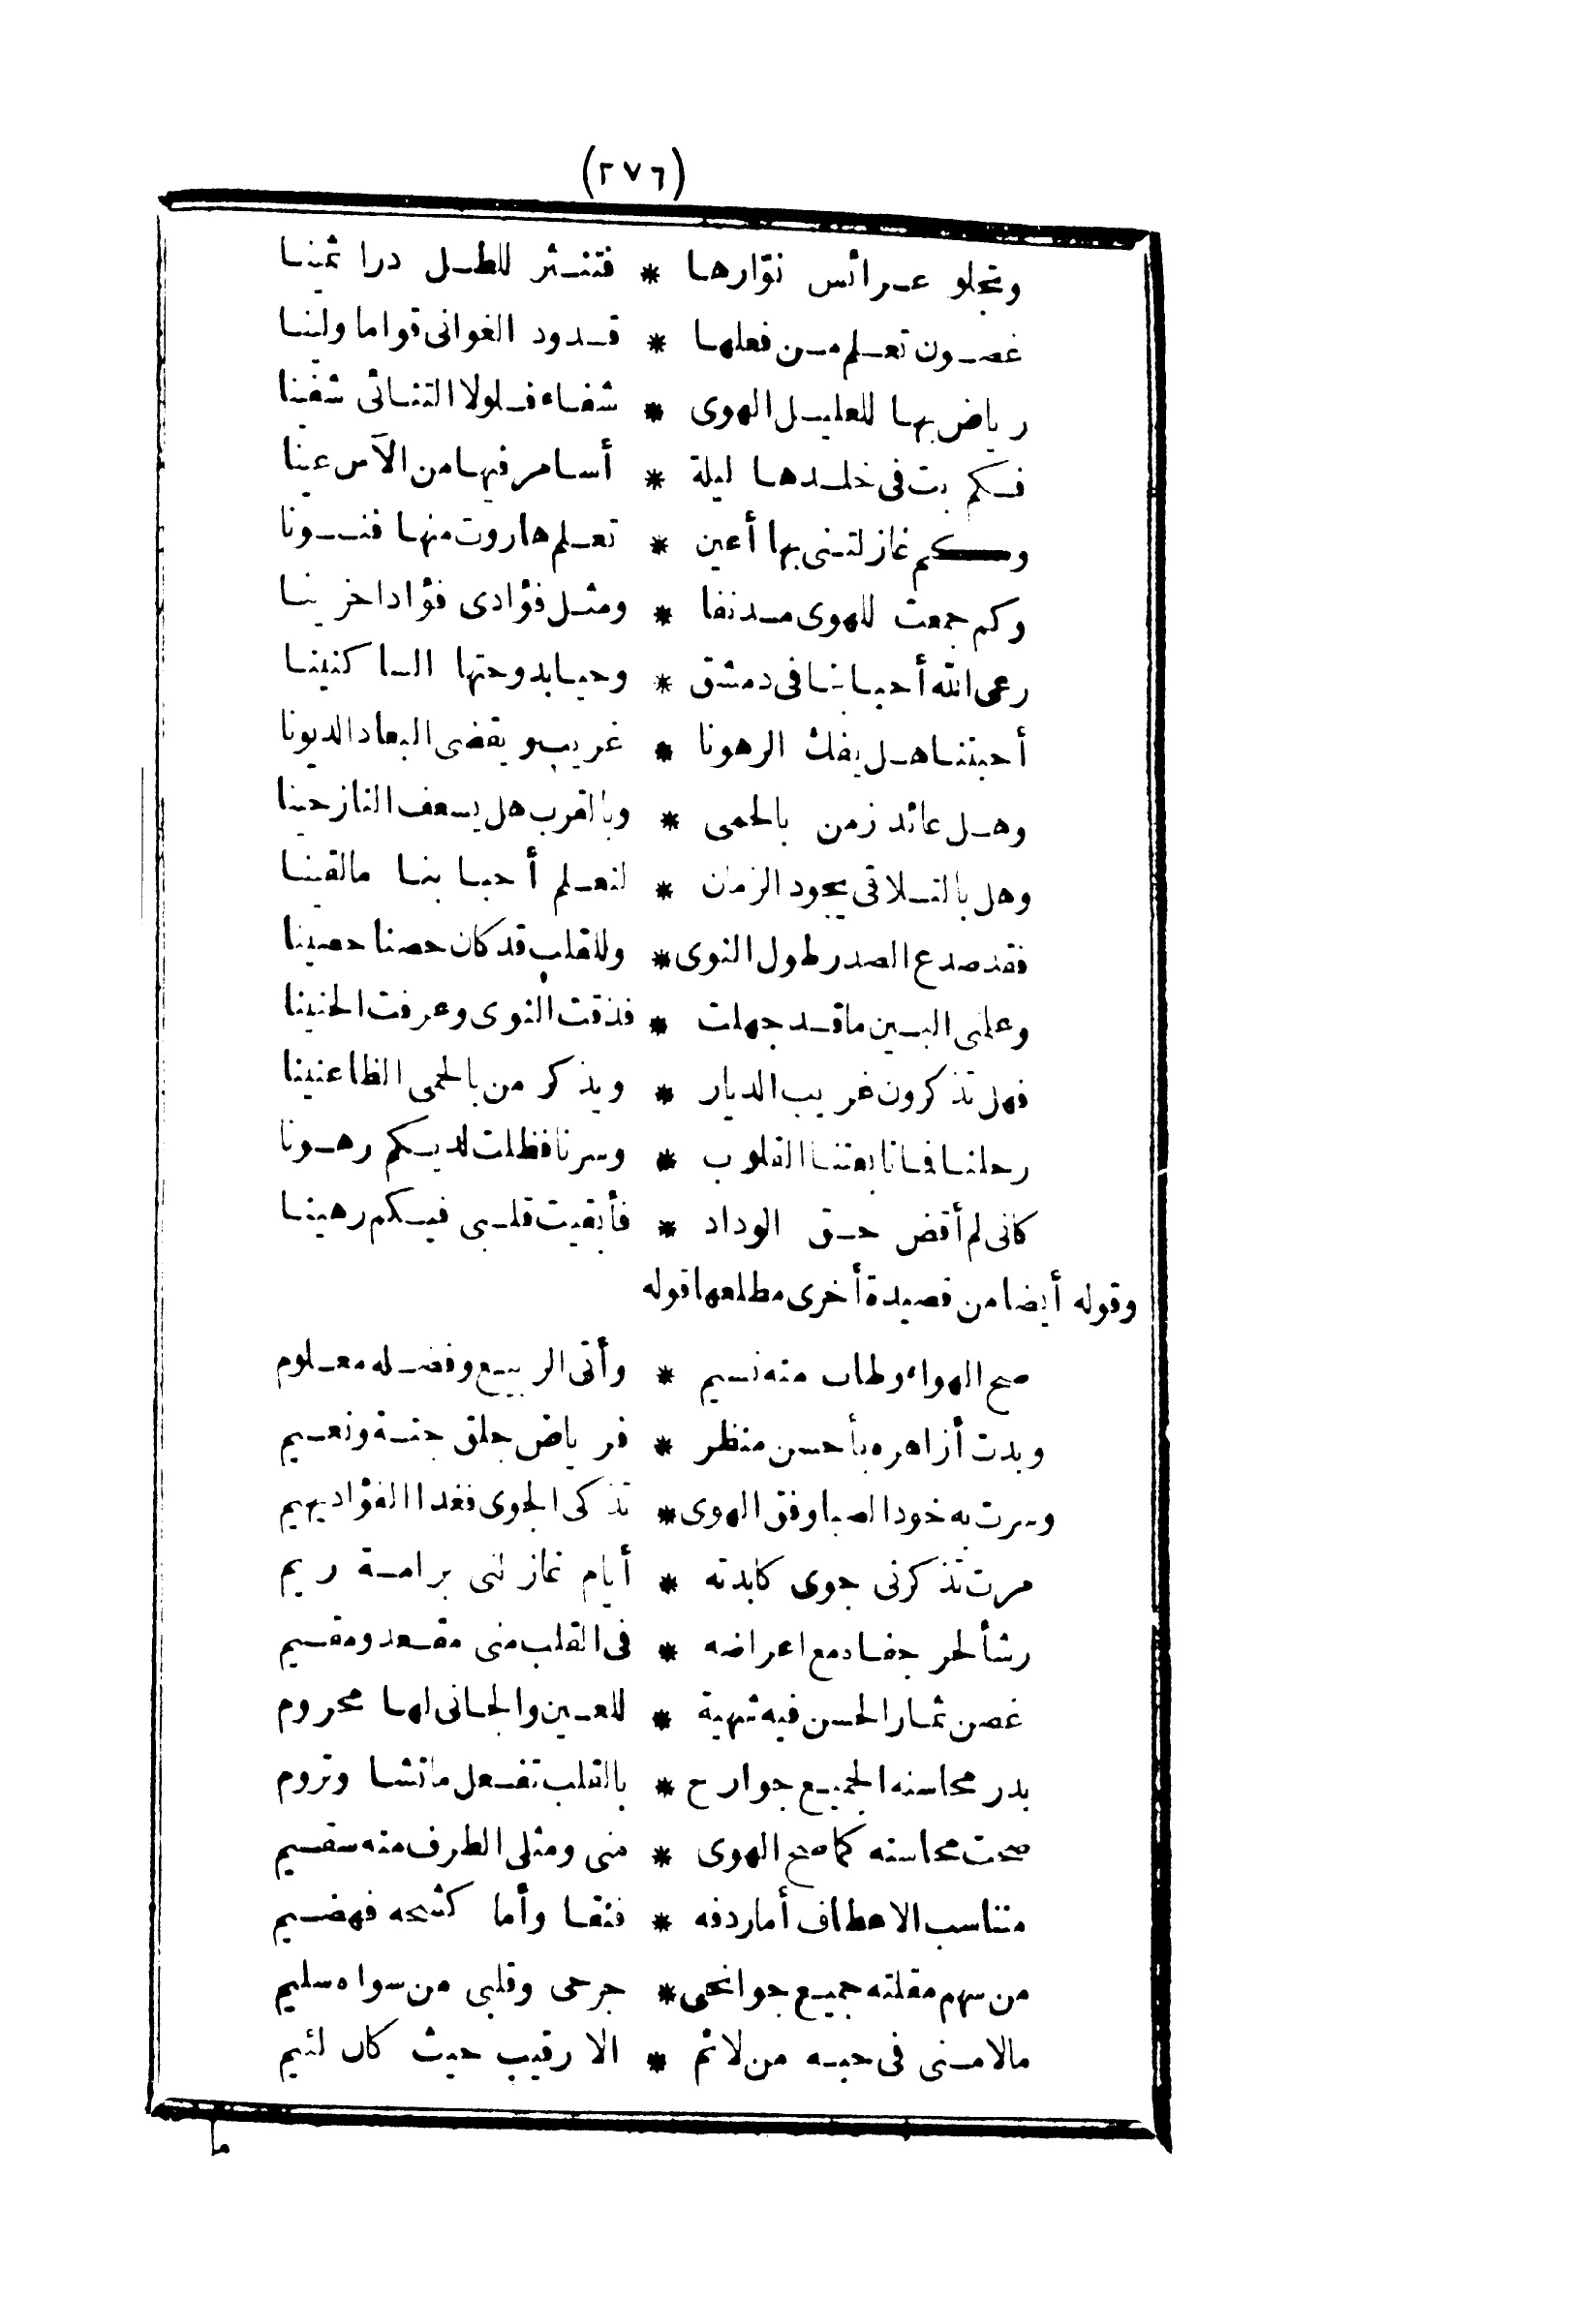 (٢٧٦)
وتجلو عرائس نوّارها * فتنثر للطل درا ثمينا
غصون تعلم من فعلها * قدود الغوانى قواما ولينا
رياض بها للعليل الهوى * شفاء فلولا التنائى شفينا
فكم بت فى خلدها ليلة * أسامر فيها من الآس عينا
وكم غازلتنى بها أعين * تعلم هاروت منها فنونا
وكم جمعت للهوى مدنفا * ومثل فؤادى فؤادا خرينا
رعى الله أحبابنا فى دمشق * وحيا بدوحتها الساكنينا
أحبتنا هل يفك الرهونا * غريب ويقضى البعاد الديونا
وهل عائد زمن بالحمى * وبالقرب هل يسعف النازحينا
وهل بالتلاقى يجود الزمان * لنعلم أحبابنا مالقينا
فقد صدع الصدر طول النوى * وللقلب قد كان حصنا حصينا
وعلمى البين ماقد جهلت * فذقت النوى وعرفت الحنينا
فهل تذكرون غريب الديار * ويذكر من بالحمى الظاعنينا
رحلنا فاتابعتنا القلوب * وسرنا فظلت لديكم رهونا
كانى لم أقض حق الوداد * فأبقيت قلبى فيكم رهينا
وقوله أيضا من قصيدة أخرى مطلعها قوله
صح الهواء وطاب منه نسيم * وأتى الربيع وفضله معلوم
وبدت أزاهره بأحسن منظر * فرياض جلق جنة ونعيم
وسرت به خود الصبا وفق الهوى * تذكى الجوى فغدا الفؤاد يهيم
مرت تذكرنى جوى كابدته * أيام غازلنى برامة ريم
رشأ لحر جفاه مع اعراضه * فى القلب منى مقعد ومقيم
غصن ثمار الحسن فيه شهية * للعين والجانى لها محروم
بدر محاسنه الجميع جوارح * بالقلب تفعل ماتشا وتروم
صحت محاسنه كما صح الهوى * منى ومثلى الطرف منه سقيم
متناسب الاعطاف أما ردفه * فنقا وأما كشحه فهضيم
من سهم مقلته جميع جوانحى * جرحى وقلبى من سواه سليم
مالامنى فى حبه من لائم * الا رقيب حيث كان لئيم
ما